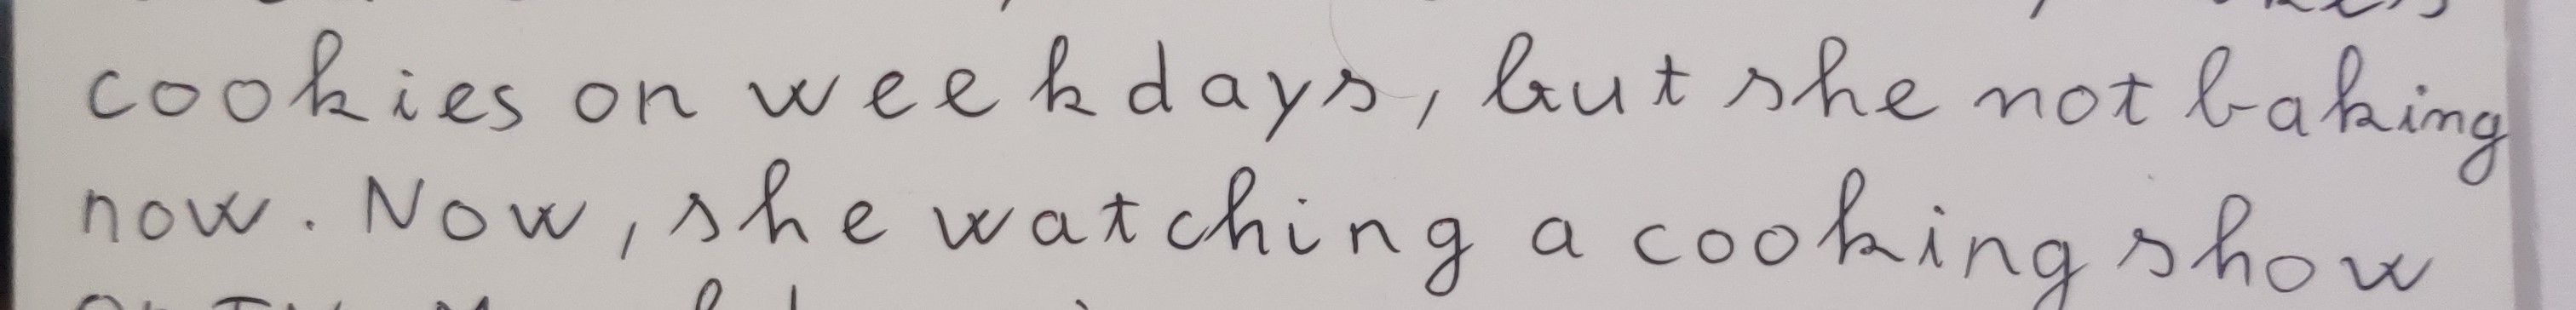 cookies on weekdays, but she not baking
now. Now, she watching a cooking show